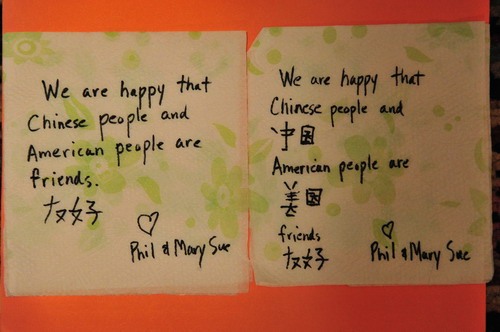 We are happy that
Chinese people and
American people are
friends.
友好
♡
Phil & Mary Sue
We are happy that
Chinese people and
中国
American people are
美国
friends
友好
♡
Phil & Mary Sue